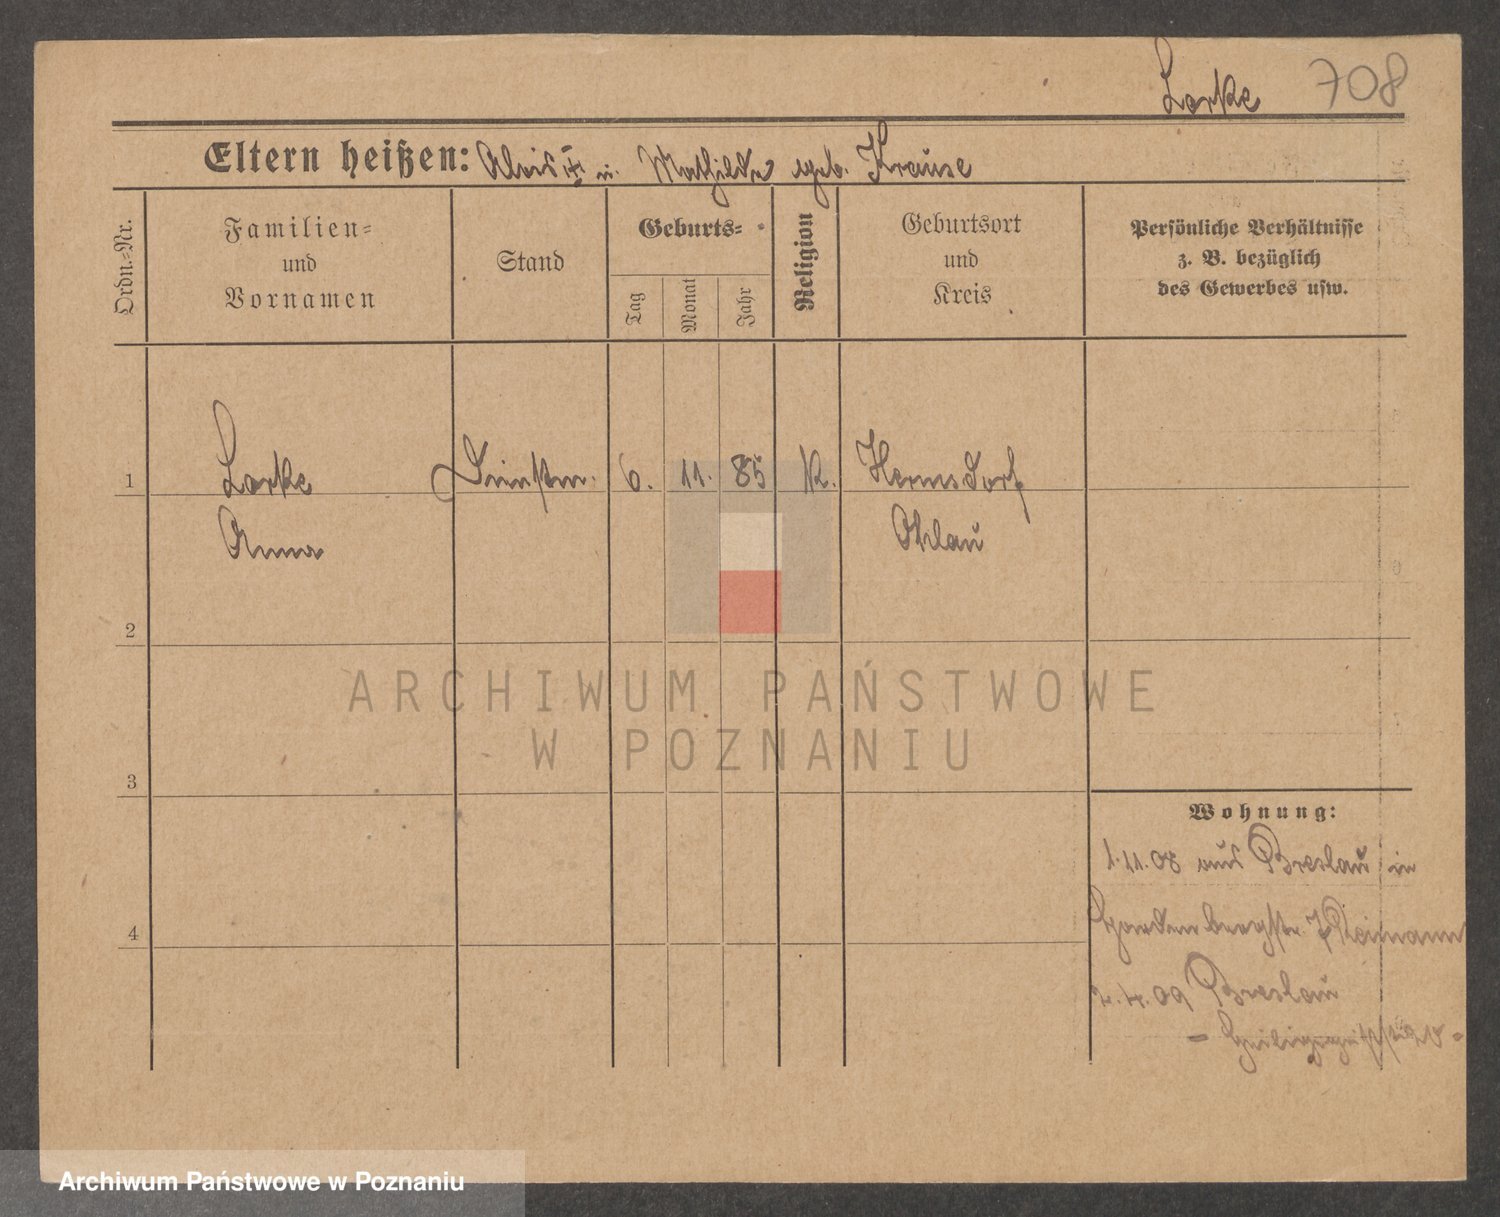 Lorke 708
Eltern heißen: Alois ☦ u. Mathilde geb. Krause
Ordn.=Nr.
Familien=
und
Vornamen
Stand
Geburts=
Tag
Monat
Jahr
Religion
Geburtsort
und
Kreis
Persönliche Verhältnisse
z. B. bezüglich
des Gewerbes usw.
1 Lorke Dienstm. 6. 11. 85 K. Hermsdorf
Anna Ohlau
2
ARCHIWUM PAŃSTWOWE
W POZNANIU
3
Wohnung:
1.11.08 aus Breslau in
Hardenbergstr. Reimann
4
2.4.09 Breslau
Archiwum Państwowe w Poznaniu